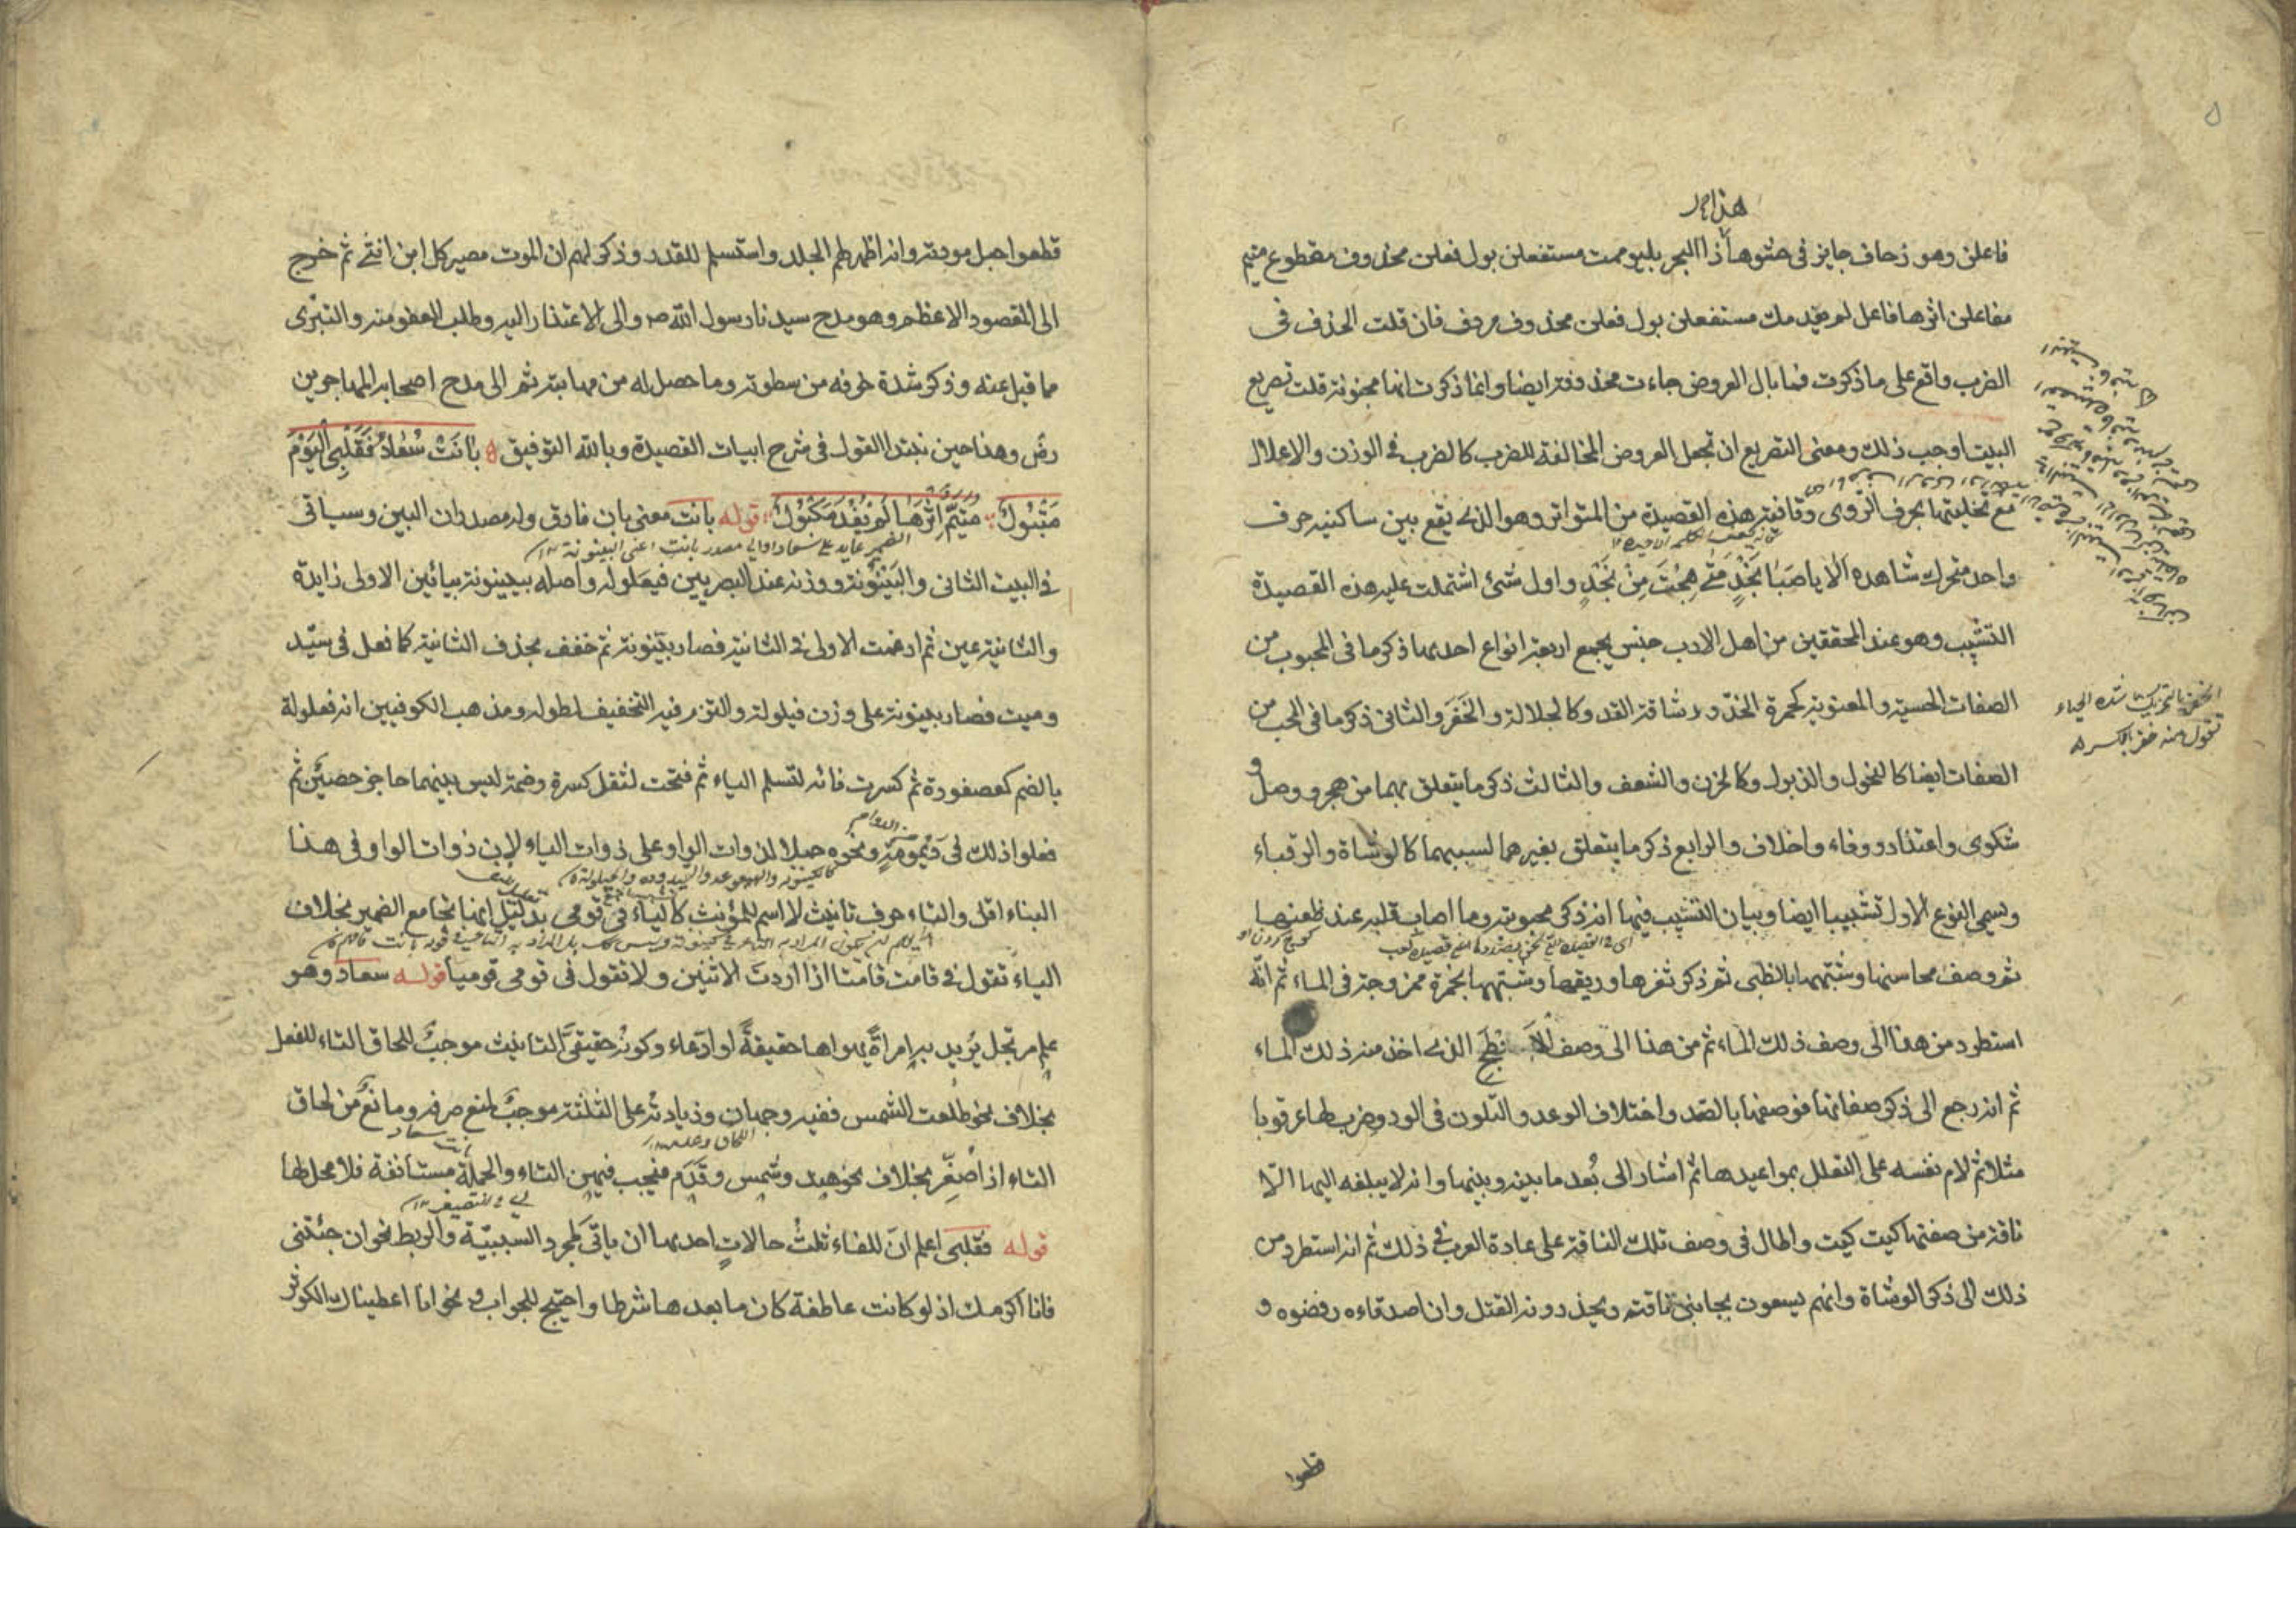 هذا
فاعلن وهو زحاف جايز في حشو هذا البحر بليومت مستفعلن بول فعلن محذوف مقطوع متيم
مفاعلن اثرها فاعل لم يفد مك مستفعلن بول فعلن محذوف مردف فان قلت الحذف في
الضرب واقع على ما ذكرت فما بال العروض جاءت محذوفة ايضا وانما ذكرت انها مخبونة قلت تصريع
البيت اوجب ذلك ومعنى التصريع ان تجعل العروض المخالفة للضرب كالضرب في الوزن والاعلال
مع تحليتها بحرف الروى وقافية هذه القصيدة من المتواتر وهو الذي يقع بين ساكنيه حرف
واحد متحرك شاهده اَلا يا صَبَا نَجْدٍ مَتى هِجْتَ مِنْ نَجْدٍ واول شئ اشتملت عليه هذه القصيدة
التشبيب وهو عند المحققين من اهل الادب جنس يجمع اربعة انواع احدها ذكر ما في المحبوب من
الصفات الحسية والمعنوية كحمرة الخدّ ورشاقة القد وكالجلالة والخَفَر والثاني ذكر ما في المحب من
الصفات ايضا كالنحول والذبول وكالحزن والشعف والثالث ذكر ما يتعلق بهما من هجر ووصل و
شكوى واعتذار ووفاء واخلاف والرابع ذكر ما يتعلق بغيرهما لسببهما كالوشاة والرقباء
ويسمى النوع الاول تشبيبا ايضا وبيان التشبيب فيها انه ذكر محبوبته وما اصاب قلبه عند ظعنها
ثم وصف محاسنها وشبّهها بالظبي ثم ذكر ثغرها وريقها وشبّهها بخمرة ممزوجة في الماء ثم انّه
استطرد من هذا الى وصف ذلك الماء ثم من هذا الى وصف الابطح الذي اخذ منه ذلك الماء
ثم انه رجع الى ذكر صفاتها فوصفها بالصّد واختلاف الوعد والتلون في الود وضرب لها عرقوبا
مثلا ثم لام نفسه على التعلل بمواعيدها ثم اشار الى بُعد ما بينه وبينها وانه لا يبلغه اليها الّا
ناقة من صفتها كيت كيت واطال في وصف تلك الناقة على عادة العرب في ذلك ثم انه استطرد من
ذلك الى ذكر الوشاة وانهم يسعون بجانبي ناقته ويحذرونه القتل وان اصدقاءه رفضوه و
قطعوا
بالتحريك شدة الحياء
تقول منه خفر بالكسر
قطعوا حبل مودته وانه اظهر لهم الجلد واستسلم للقدر وذكر لهم ان الموت مصير كل ابن انثى ثم خرج
الى المقصود الاعظم وهو مدح سيدنا رسول الله ص والى الاعتذار اليه وطلب العفو منه والتبرّى
مما قيل عنه وذكر شدة خوفه من سطوته وما حصل له من مهابته ثم الى مدح اصحابه المهاجرين
رضَ وهذا حين نبتدا القول في شرح ابيات القصيدة وبالله التوفيق بَانَتْ سُعٰادُ فَقَلْبِي الْيَوْمَ
مَتْبُولُ مُتَيَّمٌ اِثْرَهَا لَمْ يُفْدَ مَكْبُولُ قوله بانت معنى بان فارق وله مصدران البين وسياتى
الضمير عايد على سعاد او الى مصدر بانت اعنى البينونة
في البيت الثانى والبَيْنُونَة ووزنه عند البصريين فيعلولة واصله بييَنونة بيائين الاولى زايدة
والثانية عين ثم ادغمت الاولى في الثانية فصار بيّنونة ثم خفف بحذف الثانية كما فعل في سيّد
وميت فصار بينونة على وزن فيلولة والتزم فيه التخفيف لطوله ومذهب الكوفيين انه فعلولة
بالضم كعصفورة ثم كسرت فائه لتسلم الياء ثم فتحت لثقل كسرة وضمة ليس بينهما حاجز حصين ثم
من الدوام
فعلوا ذلك في دَيْمومَةٍ ونحوه حملا لذوات الواو على ذوات الياء لان ذوات الواو في هذا
البناء اقل والتاء حرف تانيث لا اسم للمؤنث كالياء في قومى بدليل انها تجامع الضمير بخلاف
الياء تقول في قامت قامتا اذا اردت الاثنين ولا تقول في قومى قوميا قوله سعاد وهو
علم مرتجل يُريد به امراةً يهواها حقيقةً او ادّعاء وكونُه حقيقيَّ التانيث موجبٌ للحاق التاء للفعل
بخلاف نحو طلعت الشمس ففيه وجهان وزيادتُه على الثلثة موجبٌ لمنع صرفه ومانعٌ من لحاق
التاء اذا صُغّر بخلاف نحو هند وشمس وقَدَم فيجب فيهن التاء والجملة مستانفة فلا محل لها
قوله فقلبى اعلم انّ للفاء ثلثُ حالاتٍ احدها ان ياتى لمجرد السببيّة والربط نحو ان جئتنى
فانا اكرمك اذ لو كانت عاطفة كان ما بعدها شرطا واحتيج للجواب ونحو انا اعطيناك الكوثر